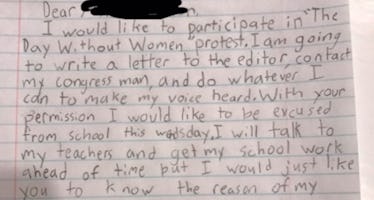 Dear
I would like to participate in "The
Day Without Women" protest. I am going
to write a letter to the editor, contact
my congress man, and do whatever I
can to make my voice heard. With your
permission I would like to be excused
from school this wedsday. I will talk to
my teachers and get my school work
ahead of time but I would just like
you to know the reason of my